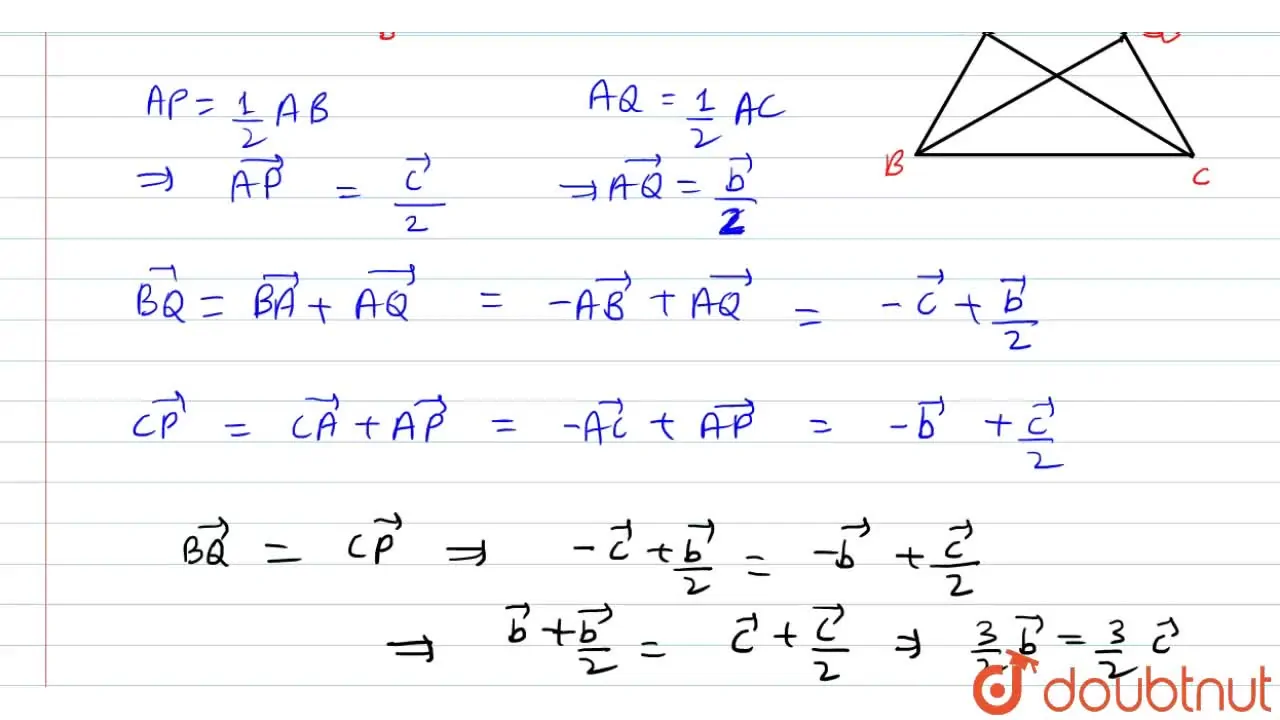 AP = 1/2 AB    AQ = 1/2 AC
⇒ \vec{AP} = \vec{c}/2    ⇒ \vec{AQ} = \vec{b}/2
B    C
\vec{BQ} = \vec{BA} + \vec{AQ} = -\vec{AB} + \vec{AQ} = -\vec{c} + \vec{b}/2
\vec{CP} = \vec{CA} + \vec{AP} = -\vec{AC} + \vec{AP} = -\vec{b} + \vec{c}/2
\vec{BQ} = \vec{CP} ⇒ -\vec{c} + \vec{b}/2 = -\vec{b} + \vec{c}/2
⇒ \vec{b} + \vec{b}/2 = \vec{c} + \vec{c}/2 ⇒ 3/2 \vec{b} = 3/2 \vec{c}
doubtnut